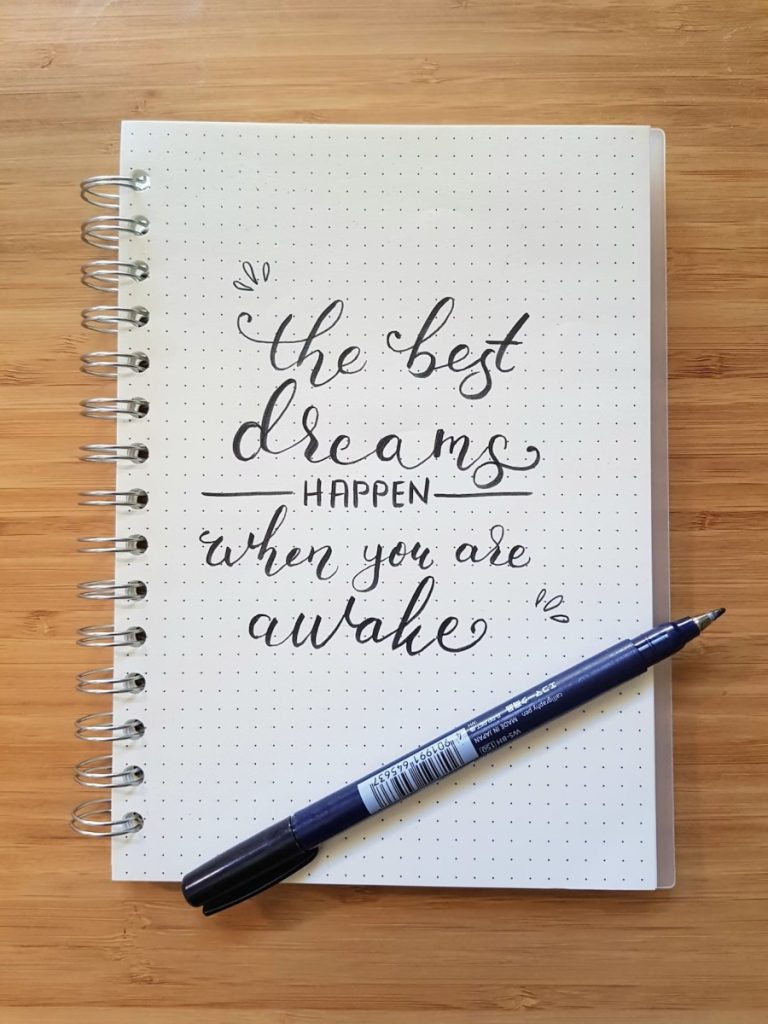 the best
dreams
HAPPEN
when you are
awake
calligraphy pen MADE IN JAPAN
WS-BH(150)
4901991645637